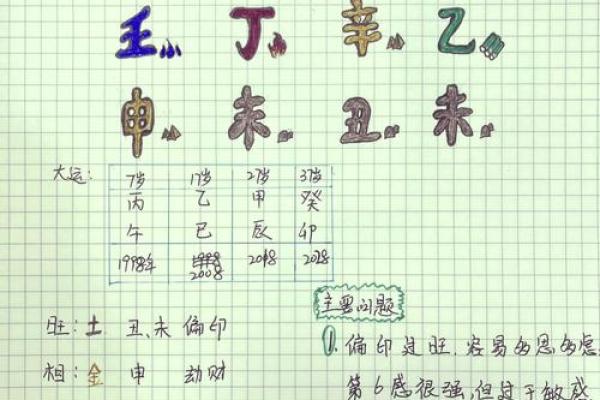 壬 丁 辛 乙
申 未 丑 未
大运: 7岁 17岁 27岁 37岁
丙 乙 甲 癸
午 巳 辰 卯
1998年 2008 2018 2028
旺: 土 丑、未 偏印
相: 金 申 劫财
主要问题
1. 偏印过旺. 容易多思多虑
第6感很强,但过于敏感